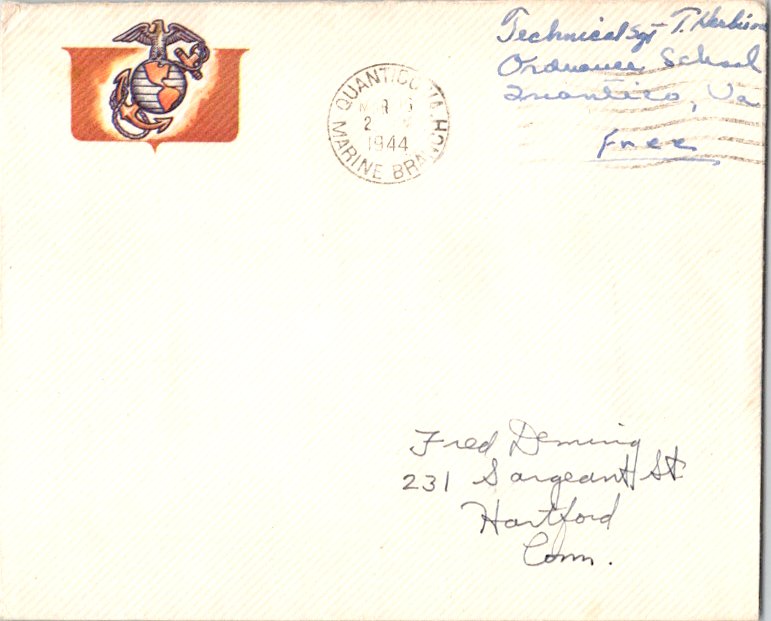 Technical Sgt T. Herbison
Ordnance School
Quantico, Va
Free
QUANTICO, VA.
MAR
2
1944
MARINE BRANCH
Fred Deming
231 Sargeant St.
Hartford
Conn.